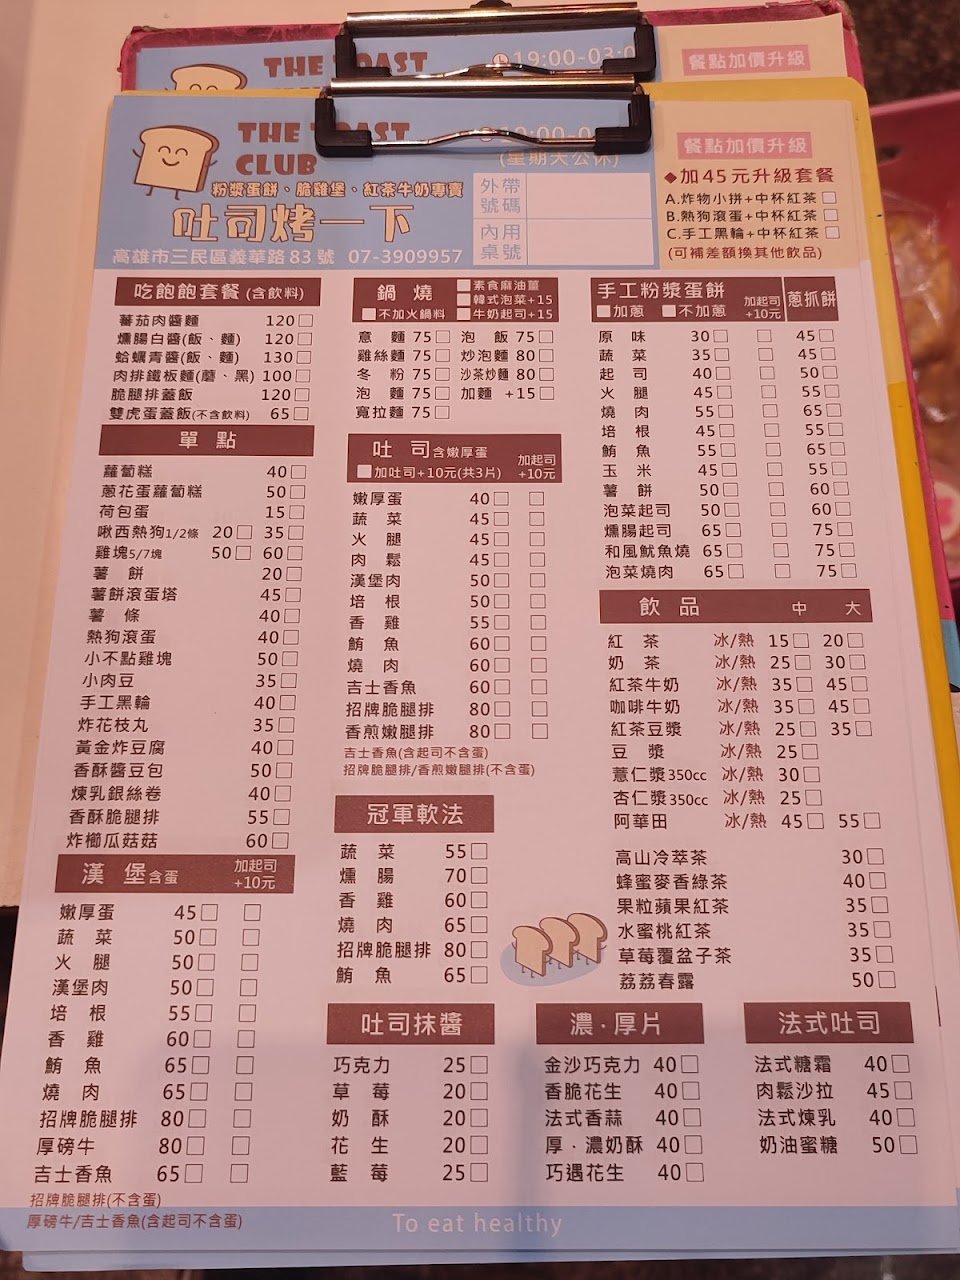 THE TOAST
19:00-03:0
餐點加價升級
THE TOAST
CLUB
(星期天公休)
粉漿蛋餅、脆雞堡、紅茶牛奶專賣
吐司烤一下
高雄市三民區義華路83號 07-3909957
外帶號碼
內用桌號
餐點加價升級
◆加45元升級套餐
A.炸物小拼+中杯紅茶□
B.熱狗滾蛋+中杯紅茶□
C.手工黑輪+中杯紅茶□
(可補差額換其他飲品)
吃飽飽套餐(含飲料)
蕃茄肉醬麵 120□
燻腸白醬(飯、麵) 120□
蛤蠣青醬(飯、麵) 130□
肉排鐵板麵(蘑、黑) 100□
脆腿排蓋飯 120□
雙虎蛋蓋飯(不含飲料) 65□
單點
蘿蔔糕 40□
蔥花蛋蘿蔔糕 50□
荷包蛋 15□
啾西熱狗1/2條 20□ 35□
雞塊5/7塊 50□ 60□
薯餅 20□
薯餅滾蛋塔 45□
薯條 40□
熱狗滾蛋 40□
小不點雞塊 50□
小肉豆 35□
手工黑輪 40□
炸花枝丸 35□
黃金炸豆腐 40□
香酥醬豆包 50□
煉乳銀絲卷 40□
香酥脆腿排 55□
炸櫛瓜菇菇 60□
漢堡含蛋 加起司+10元
嫩厚蛋 45□ □
蔬菜 50□ □
火腿 50□ □
漢堡肉 50□ □
培根 55□ □
香雞 60□ □
鮪魚 65□ □
燒肉 65□ □
招牌脆腿排 80□ □
厚磅牛 80□ □
吉士香魚 65□ □
招牌脆腿排(不含蛋)
厚磅牛/吉士香魚(含起司不含蛋)
鍋燒
□不加火鍋料
□素食麻油薑
□韓式泡菜+15
□牛奶起司+15
意麵 75□ 泡飯 75□
雞絲麵 75□ 炒泡麵 80□
冬粉 75□ 沙茶炒麵 80□
泡麵 75□ 加麵 +15□
寬拉麵 75□
吐司含嫩厚蛋
□加吐司+10元(共3片) 加起司+10元
嫩厚蛋 40□ □
蔬菜 45□ □
火腿 45□ □
肉鬆 45□ □
漢堡肉 50□ □
培根 50□ □
香雞 55□ □
鮪魚 60□ □
燒肉 60□ □
吉士香魚 60□ □
招牌脆腿排 80□ □
香煎嫩腿排 80□ □
吉士香魚(含起司不含蛋)
招牌脆腿排/香煎嫩腿排(不含蛋)
冠軍軟法
蔬菜 55□
燻腸 70□
香雞 60□
燒肉 65□
招牌脆腿排 80□
鮪魚 65□
手工粉漿蛋餅 蔥抓餅
□加蔥 □不加蔥 加起司+10元
原味 30□ □ 45□
蔬菜 35□ □ 45□
起司 40□ □ 50□
火腿 45□ □ 55□
燒肉 55□ □ 65□
培根 45□ □ 55□
鮪魚 55□ □ 65□
玉米 45□ □ 55□
薯餅 50□ □ 60□
泡菜起司 50□ □ 60□
燻腸起司 65□ □ 75□
和風魷魚燒 65□ □ 75□
泡菜燒肉 65□ □ 75□
飲品 中 大
紅茶 冰/熱 15□ 20□
奶茶 冰/熱 25□ 30□
紅茶牛奶 冰/熱 35□ 45□
咖啡牛奶 冰/熱 35□ 45□
紅茶豆漿 冰/熱 25□ 35□
豆漿 冰/熱 25□
薏仁漿350cc 冰/熱 30□
杏仁漿350cc 冰/熱 25□
阿華田 冰/熱 45□ 55□
高山冷萃茶 30□
蜂蜜麥香綠茶 40□
果粒蘋果紅茶 35□
水蜜桃紅茶 35□
草莓覆盆子茶 35□
荔荔春露 50□
吐司抹醬
巧克力 25□
草莓 20□
奶酥 20□
花生 20□
藍莓 25□
濃·厚片
金沙巧克力 40□
香脆花生 40□
法式香蒜 40□
厚·濃奶酥 40□
巧遇花生 40□
法式吐司
法式糖霜 40□
肉鬆沙拉 45□
法式煉乳 40□
奶油蜜糖 50□
To eat healthy